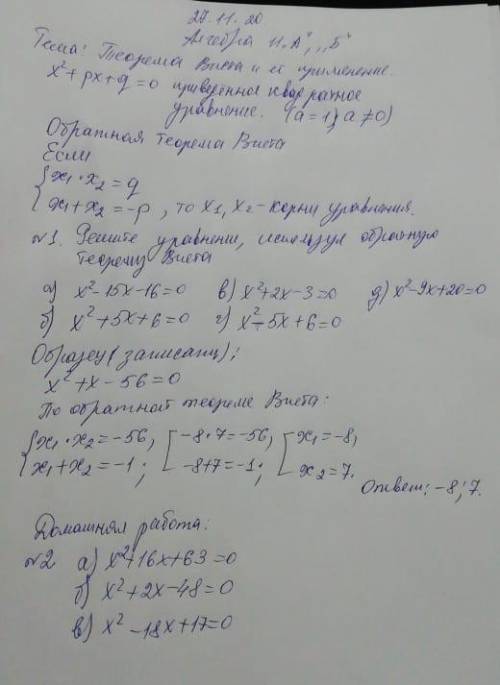 27.11.20
Алгебра 11 „А", „Б"
Тема: Теорема Виета и её применение.
x²+px+q=0 приведённое квадратное
уравнение. (a=1; a≠0)
Обратная теорема Виета
Если
{x₁·x₂=q
{x₁+x₂=-p, то x₁, x₂-корни уравнения.
№1. Решите уравнение, используя обратную
теорему Виета
а) x²-15x-16=0 в) x²+2x-3=0 д) x²-9x+20=0
б) x²+5x+6=0 г) x²-5x+6=0
Образец (записать):
x²+x-56=0
По обратной теореме Виета:
{x₁·x₂=-56, [-8·7=-56, [x₁=-8,
{x₁+x₂=-1; [-8+7=-1; [x₂=7.
Ответ: -8; 7.
Домашняя работа:
№2 а) x²+16x+63=0
б) x²+2x-48=0
в) x²-18x+17=0